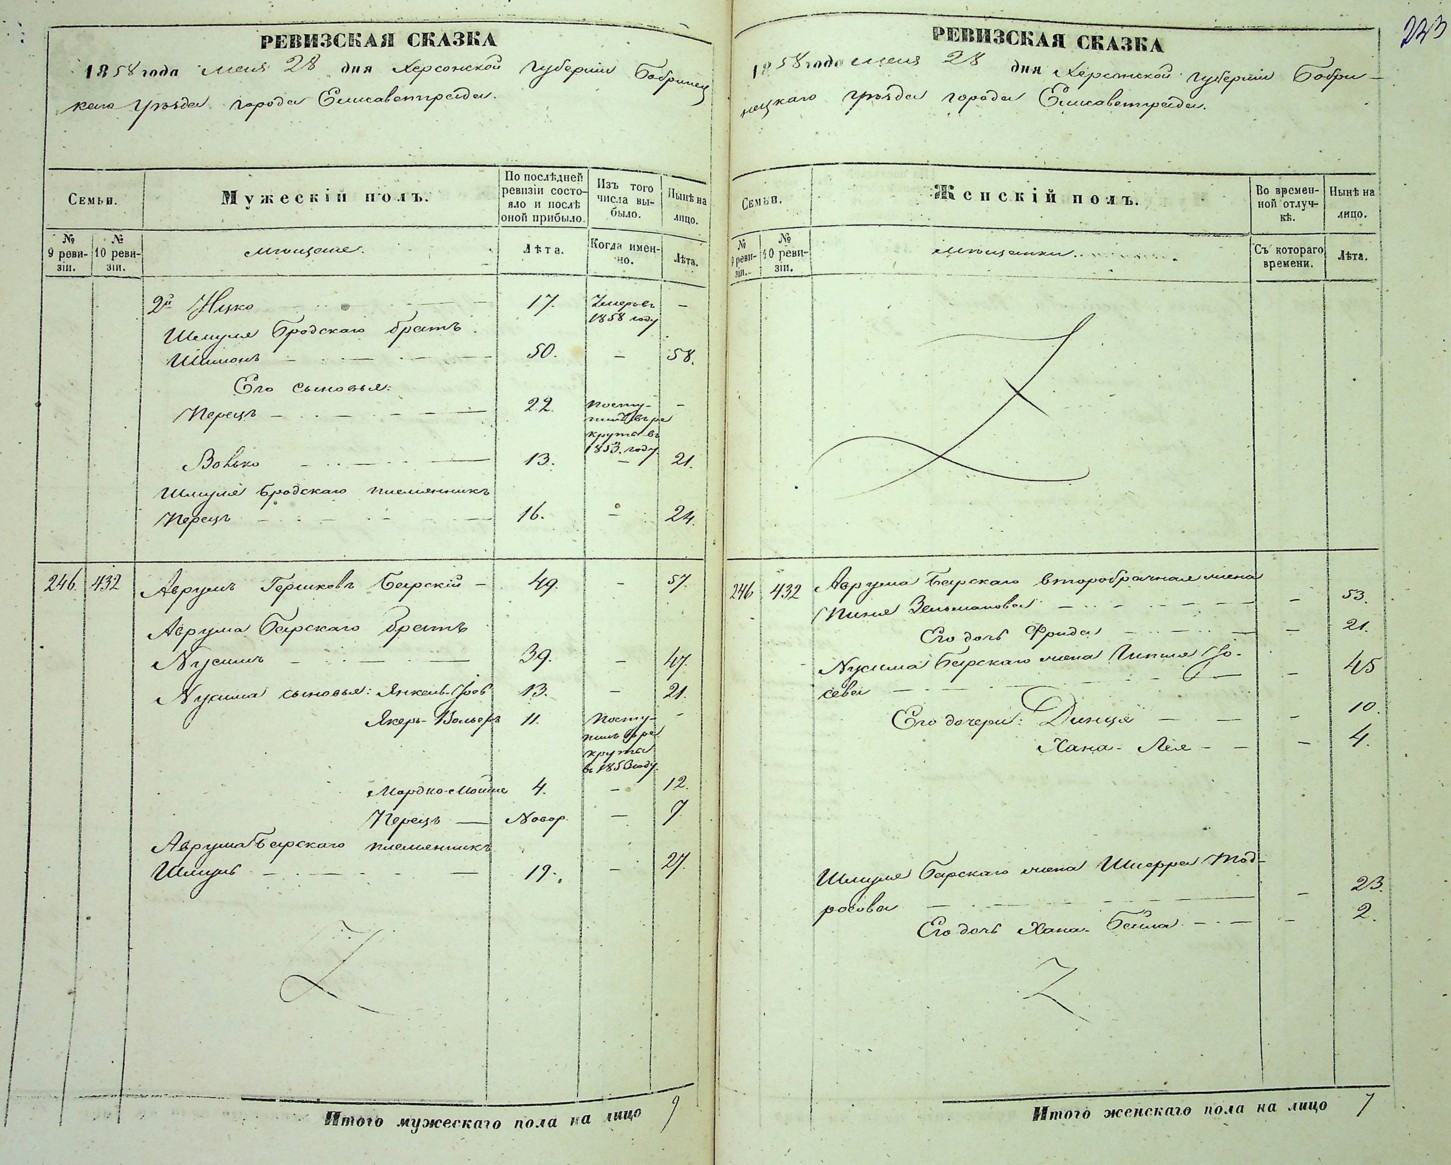 223
РЕВИЗСКАЯ СКАЗКА
1858 года Мая 28 дня Херсонской губерніи Бобринец
каго уѣзда города Елисаветграда.
Семьи.
Мужескій полъ.
По послѣдней ревизіи состояло и послѣ оной прибыло.
Изъ того числа выбыло.
Нынѣ на лицо.
№ 9 ревизіи.
№ 10 ревизіи.
Мѣщане.
Лѣта.
Когда именно.
Лѣта.
2й Ицко 17. Умеръ въ 1858 году –
Шмуля Бродскаго братъ
Шимонъ 50. – 58.
Его сыновья:
Перецъ 22. Поступилъ въ рекруты въ 1853 году –
Вовко 13. – 21.
Шмуля Бродскаго племянникъ
Перецъ 16. – 24.
246 432 Аврумъ Гершковъ Барскій – 49. – 57.
Аврума Барскаго братъ
Нусимъ 39. – 47.
Нусима сыновья: Янкель- 13. – 21.
11. Поступилъ въ рекруты въ 1853 году –
Мордко-Мойше 4. – 12.
Перецъ — Новор. – 7
Аврума Барскаго племянникъ
Шмуль 19. – 27.
Итого мужескаго пола на лицо 9
РЕВИЗСКАЯ СКАЗКА
1858 года Мая 28 дня Херсонской губерніи Бобри-
нецкаго уѣзда города Елисаветграда.
Семьи.
Женскій полъ.
Во временной отлучкѣ.
Нынѣ на лицо.
№ 9 ревизіи.
№ 10 ревизіи.
Мѣщанки.
Съ котораго времени.
Лѣта.
246 432 Аврума Барскаго второбрачная жена
Зельманова – 53.
Его дочь Фрида – 21.
Нусима Барскаго жена Іо-
сева – 45
Его дочери: Динця – 10.
Хана-Лея – 4.
Шмуля Барскаго жена Шифра Тод-
росова – 23.
Его дочь Хана-Бейла – 2.
Итого женскаго пола на лицо 7